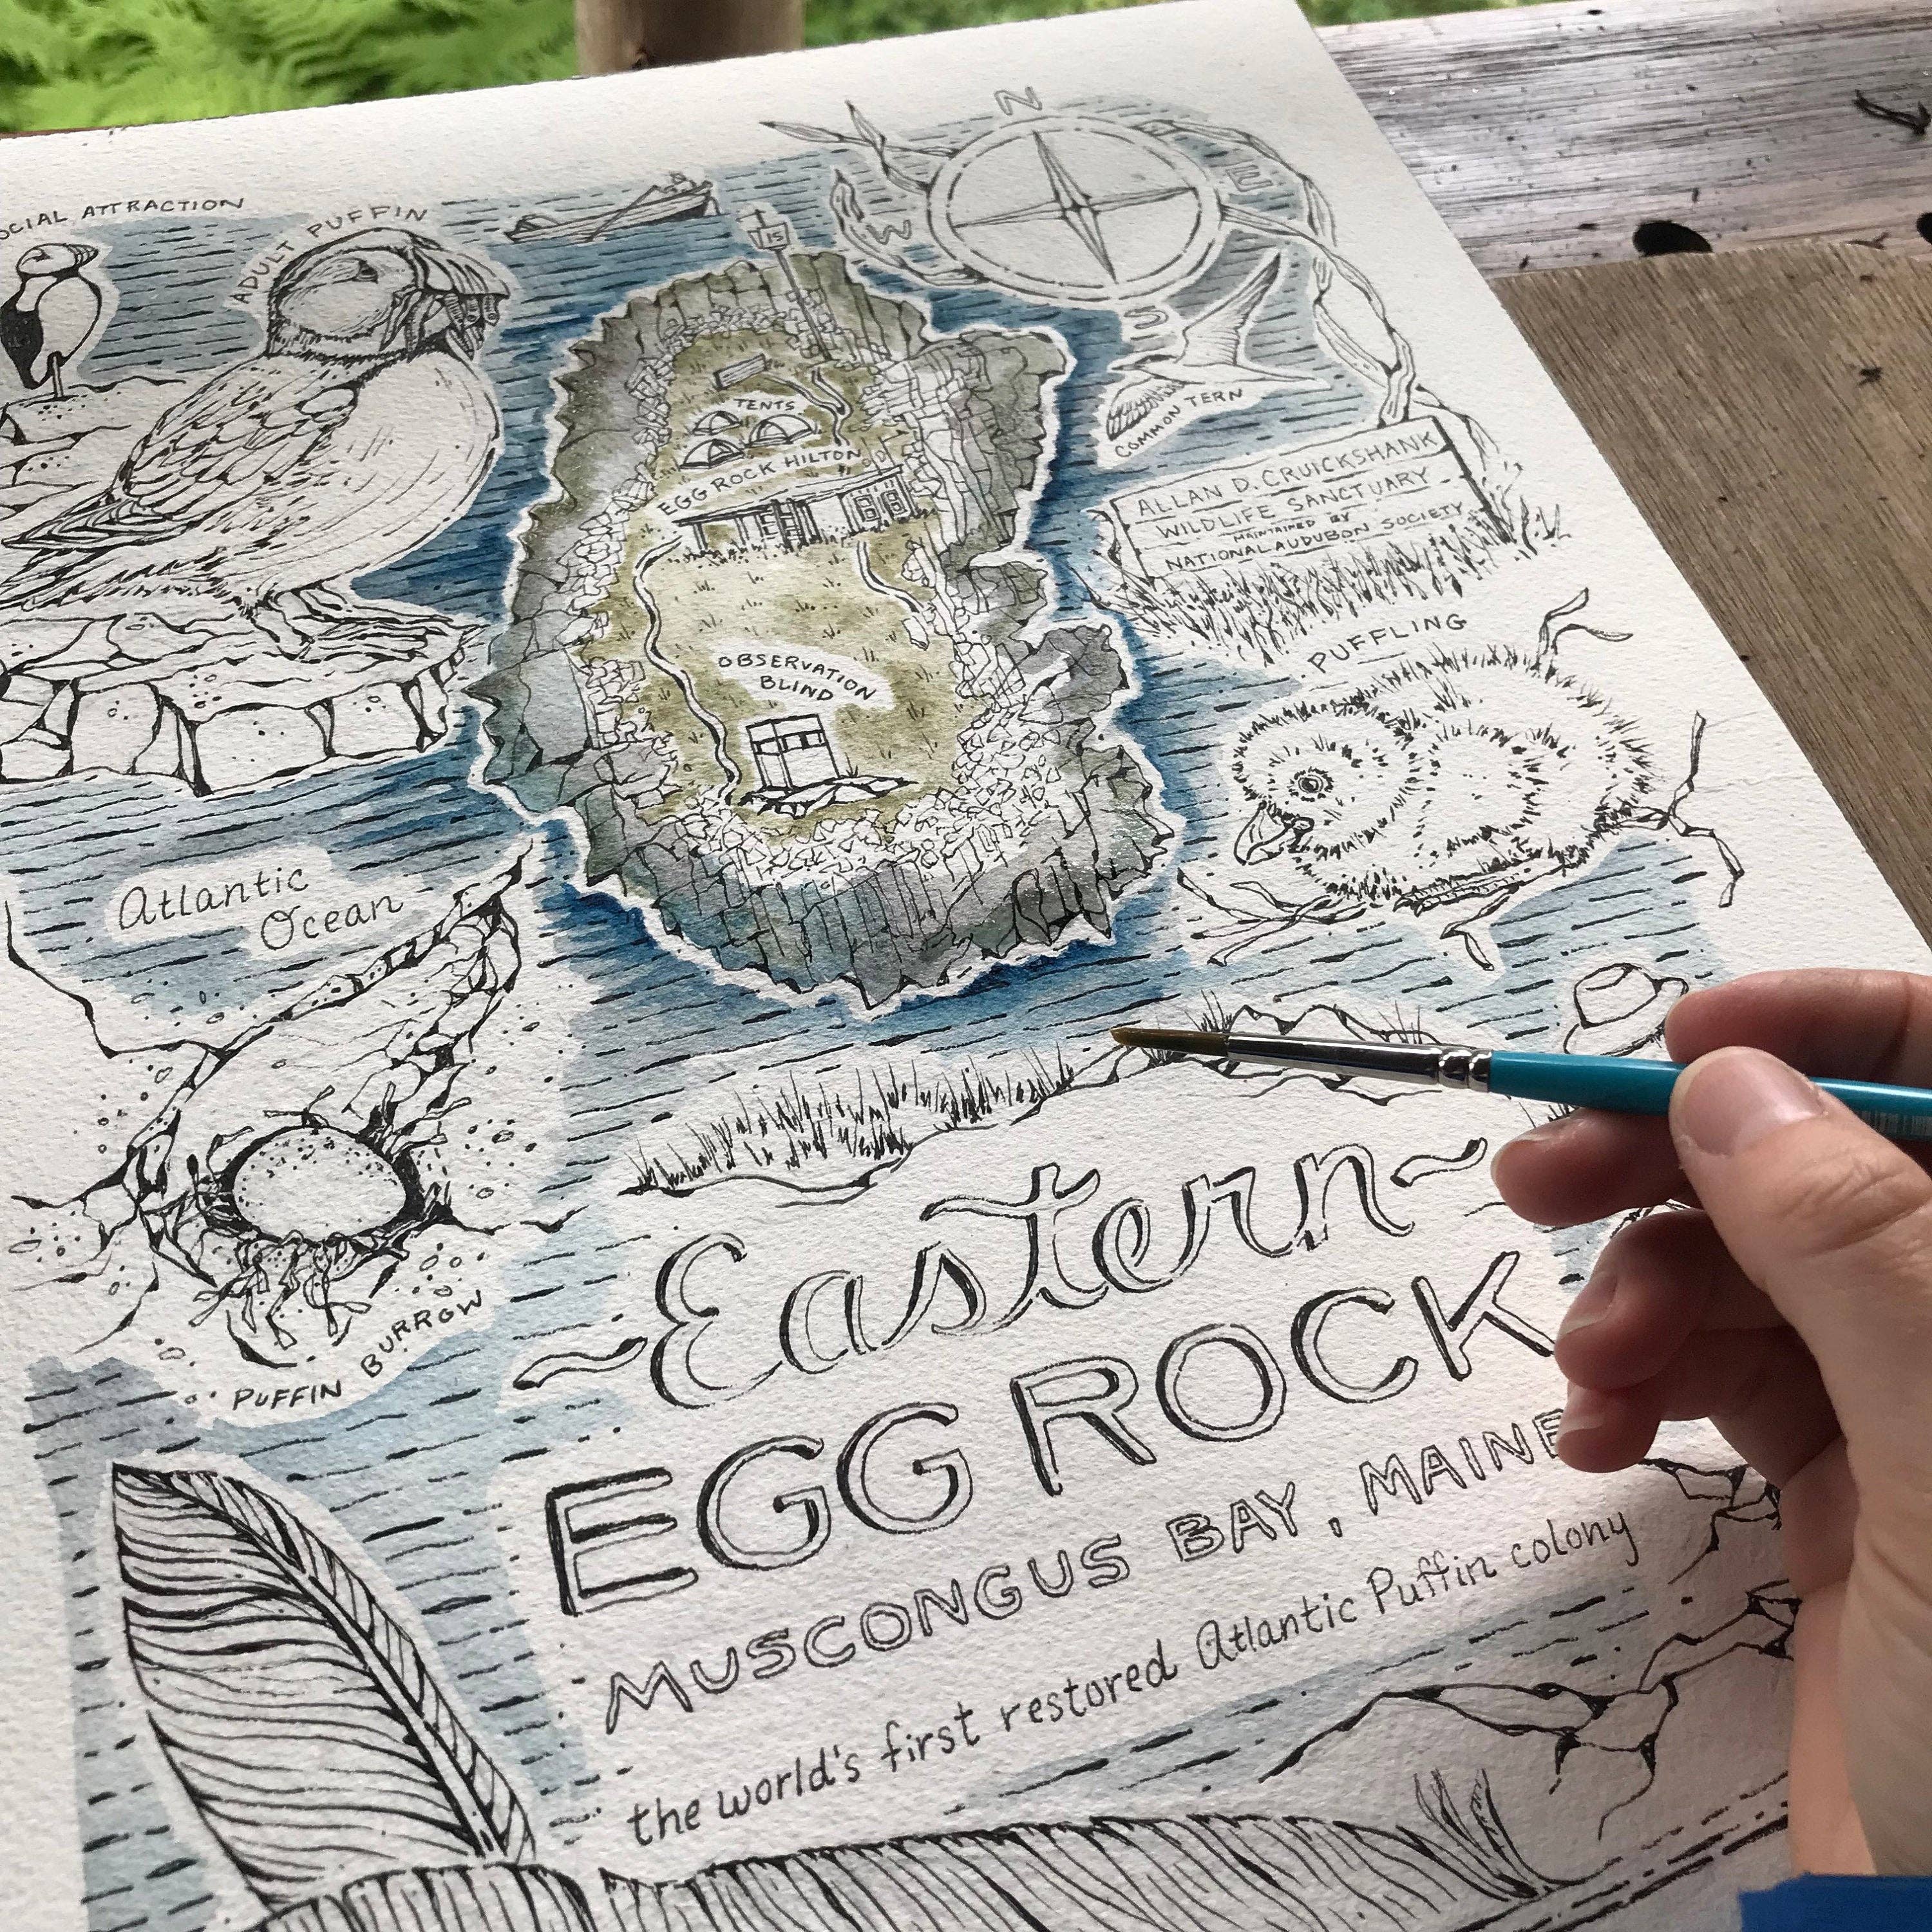 SOCIAL ATTRACTION
ADULT PUFFIN
15
N
E
S
W
TENTS
EGG ROCK HILTON
OBSERVATION
BLIND
COMMON TERN
ALLAN D. CRUICKSHANK
WILDLIFE SANCTUARY
MAINTAINED BY
NATIONAL AUDUBON SOCIETY
PUFFLING
Atlantic
Ocean
PUFFIN BURROW
~Eastern~
EGG ROCK
MUSCONGUS BAY, MAINE
the world's first restored Atlantic Puffin colony